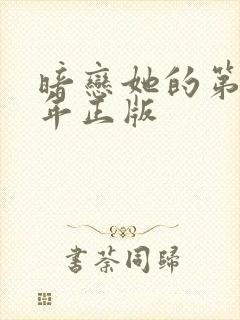 暗戀她的第
年正版
書荼同歸